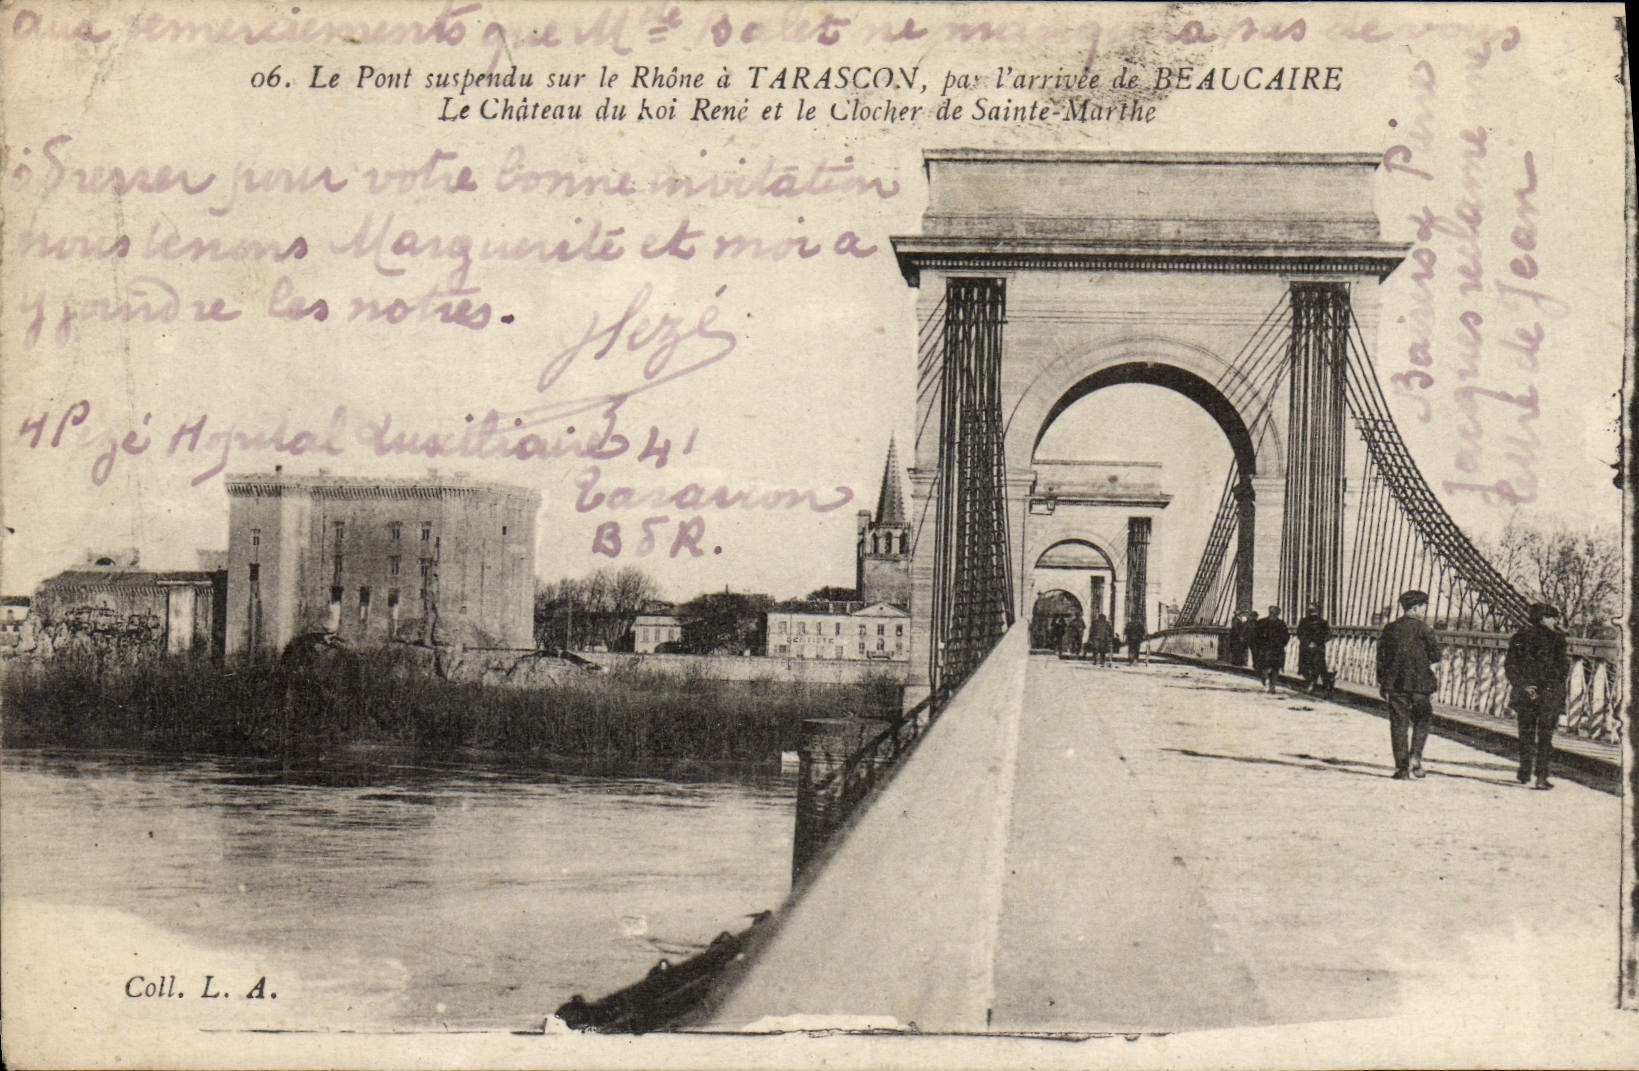 aux remerciements que Mde Salet ne manquera pas de vous
06. Le Pont suspendu sur le Rhône à TARASCON, par l'arrivée de BEAUCAIRE
Le Château du Roi René et le Clocher de Sainte-Marthe
adresser pour votre bonne invitation
nous tenons Marguerite et moi a
y joindre les notres.
Hezé
Hopital Auxiliaire 41
Tarascon
B d R.
Baisers Pierre
Jacques reclame une
lettre de Jean
Coll. L. A.